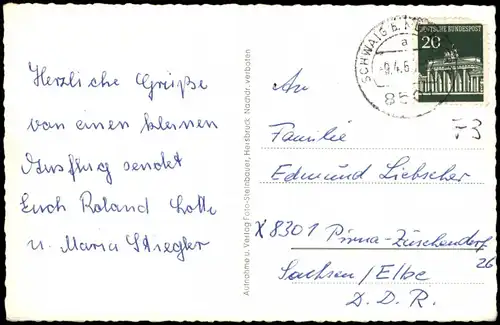 Herzliche Grüße
von einen kleinen
Ausflug sendet
Euch Roland Lotte
u. Maria Stiegler
Aufnahme u. Verlag Foto-Steinbauer, Hersbruck Nachdr. verboten
SCHWAIG B.
a
DEUTSCHE BUNDESPOST
20
An
Familie
Edmund Liebscher
X 8301 Pirna-Zuschendorf
26
Sachsen/Elbe
D. D. R.